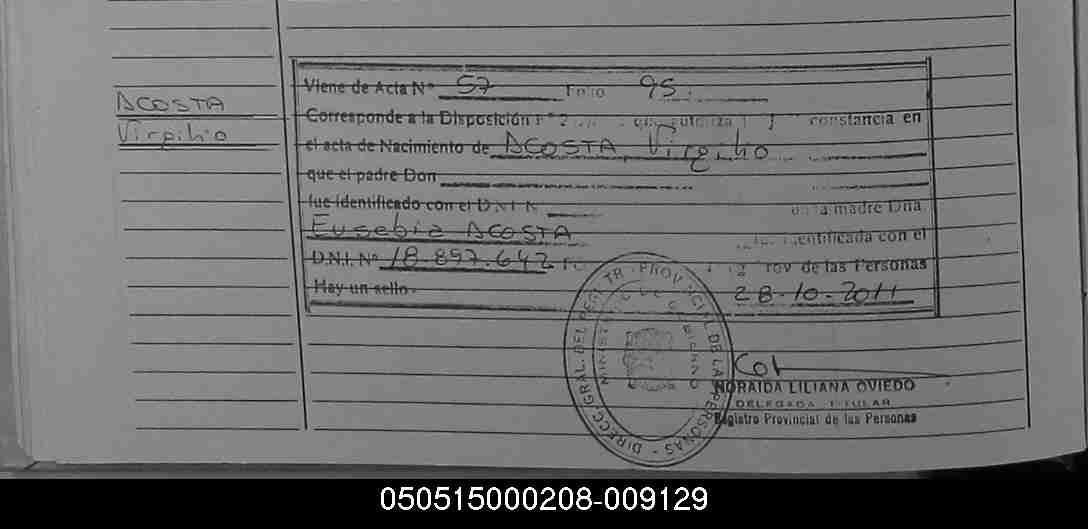 ACOSTA
Virgilio
Viene de Acta Nº 57 Folio 95.
Corresponde a la Disposición Nº 2 que autoriza constancia en
el acta de Nacimiento de ACOSTA Virgilio
que el padre Don
fue identificado con el D.N.I. N y la madre Dña.
Eusebia ACOSTA identificada con el
D.N.I. Nº 18.897.642 Prov de las Personas
Hay un sello. 28-10-2011
DIRECC. GRAL. DEL REG. TR. PROVINCIAL DE LAS PERSONAS
MINISTERIO DE GOBIERNO
NORAIDA LILIANA OVIEDO
DELEGADA TITULAR
Registro Provincial de las Personas
050515000208-009129